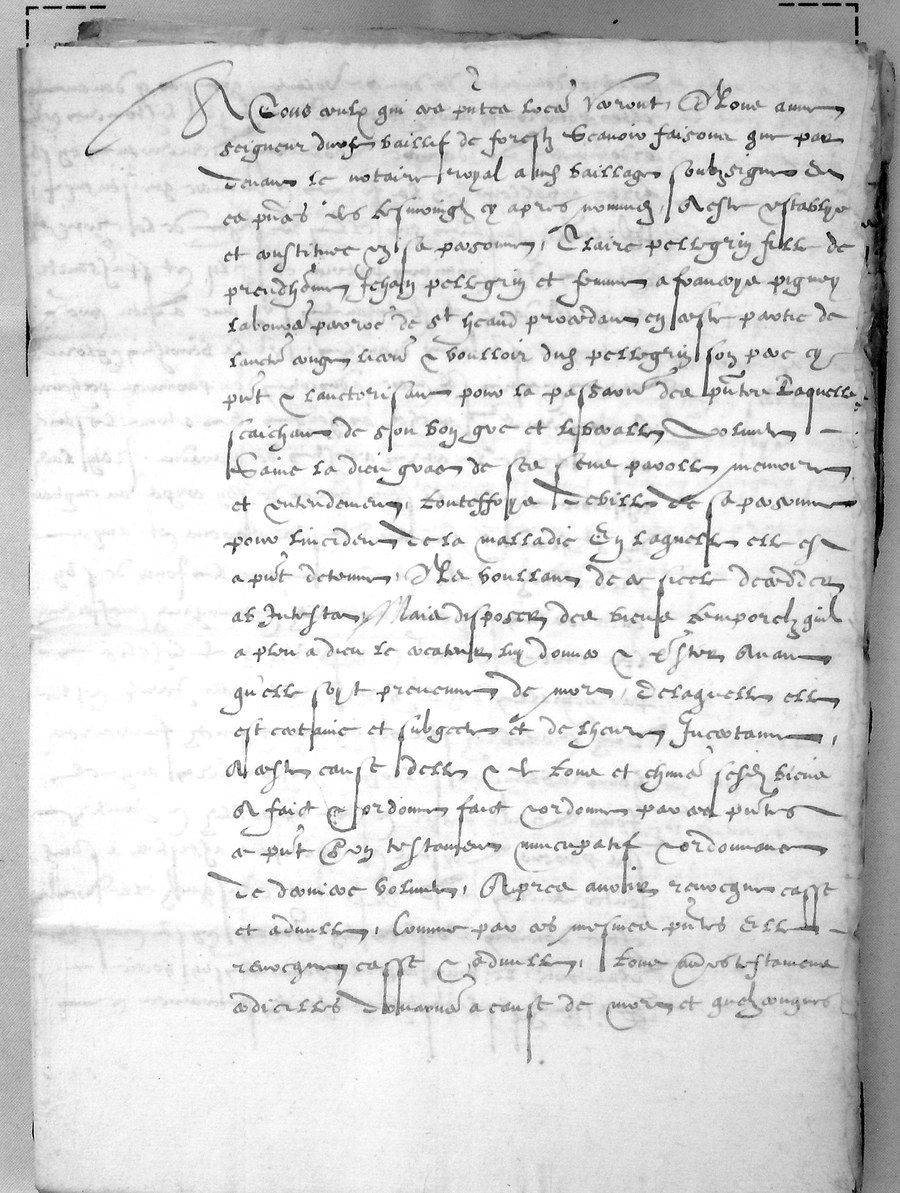 A Tous ceulx qui ces pntes lres verront Nous
seigneur dursé baillif de forestz Scavoir faisons que par
devant le notaire royal audit bailliage soubzsigné et
es pnces des tesmoingz cy apres nommez, A esté establye
et constituee en sa personne, Claire pellegrin fille de
Jehan pellegrin et femme a francoys pigney
laboureur parroe de st heand procedant en ceste partie de
lauctté congé licence & voulloir dudit pellegrin son pere cy
pnt & lauctorisant pour la passation des pntes Laquelle
saichant de son bon gré et liberalle volunté
Saine la dieu grace de ses sens parolle memoire
et entendement, touteffoys debille de sa personne
pour lincident de la malladie En laquelle elle est
a pnt detenue, Ne voullant de ce siecle decedder
ab Intestat, Mais disposer des biens temporelz quil
a pleu a dieu le createur luy donner & prester Avant
quelle soyt prevenue de mort, De laquelle elle
est certaine et subgecte et de lheure Incertaine,
A ceste cause delle & de tous et chuns sesdz biens
A faict & ordonné faict & ordonne par ces pntes
ce pnt Son testament nuncupatif & ordonnance
de derniere volunté, Apres avoir revocqué cassé
et adnullé, Comme par ces mesmes pntes Elle
revocque casse & adnulle, tous aues testamens
codicilles donnaons a cause de mort et quelzconques